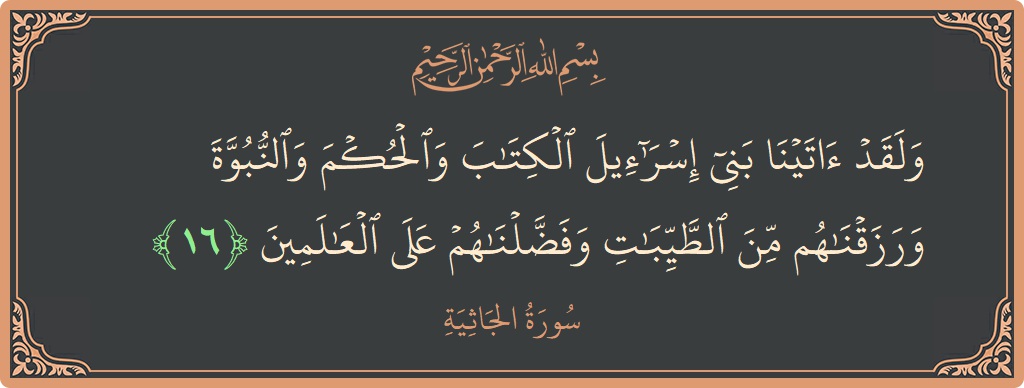 بِسْمِ اللَّهِ الرَّحْمَٰنِ الرَّحِيمِ
وَلَقَدْ ءَاتَيْنَا بَنِىٓ إِسْرَٰٓءِيلَ ٱلْكِتَٰبَ وَٱلْحُكْمَ وَٱلنُّبُوَّةَ
وَرَزَقْنَٰهُم مِّنَ ٱلطَّيِّبَٰتِ وَفَضَّلْنَٰهُمْ عَلَى ٱلْعَٰلَمِينَ ﴿١٦﴾
سُورَةُ الجَاثِيَةِ